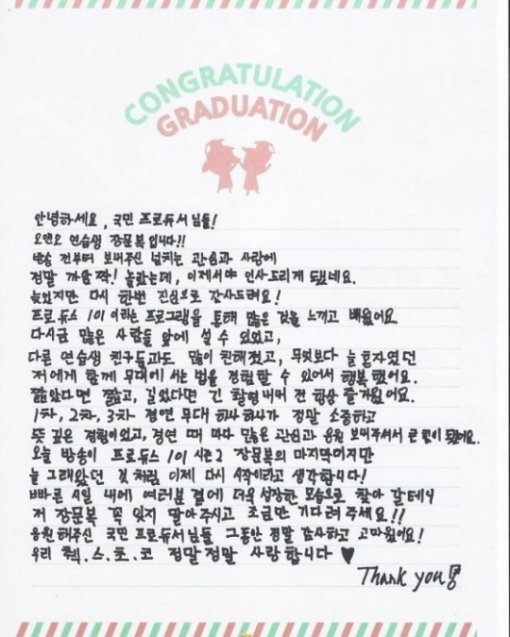 CONGRATULATION
GRADUATION
안녕하세요, 국민 프로듀서님들!
오앤오 연습생 장문복입니다!!
방송 전부터 보내주신 넘치는 관심과 사랑에
정말 깜움짝! 놀랐는데, 이제서야 인사드리게 됐네요.
늦었지만 다시 한번 진심으로 감사드려요!
프로듀스 101 이라는 프로그램을 통해 많은 것을 느끼고 배웠어요
다시금 많은 사람들 앞에 설 수 있었고,
다른 연습생 친구들과도 많이 친해졌고, 무엇보다 늘 혼자였던
저에게 함께 무대에 서는 법을 경험할 수 있어서 행복했어요.
짧았다면 짧고, 길었다면 긴 촬영내내 전 항상 즐거웠어요.
1차, 2차, 3차 경연 무대 하나하나가 정말 소중하고
뜻 깊은 경험이었고, 경연 때 마다 많은 관심과 응원 보내주셔서 큰 힘이 됐어요.
오늘 방송이 프로듀스 101 시즌2 장문복의 마지막이지만
늘 그래왔던 것 처럼 이제 다시 시작이라고 생각합니다!
빠른 시일 내에 여러분 곁에 더욱 성장한 모습으로 찾아 갈테니
저 장문복 꼭 잊지 말아주시고 조금만 기다려주세요!!
응원해주신 국민 프로듀서님들 그동안 정말 감사하고 고마웠어요!
우리 췍.스.초.코 정말정말 사랑합니다 ♥
Thank you